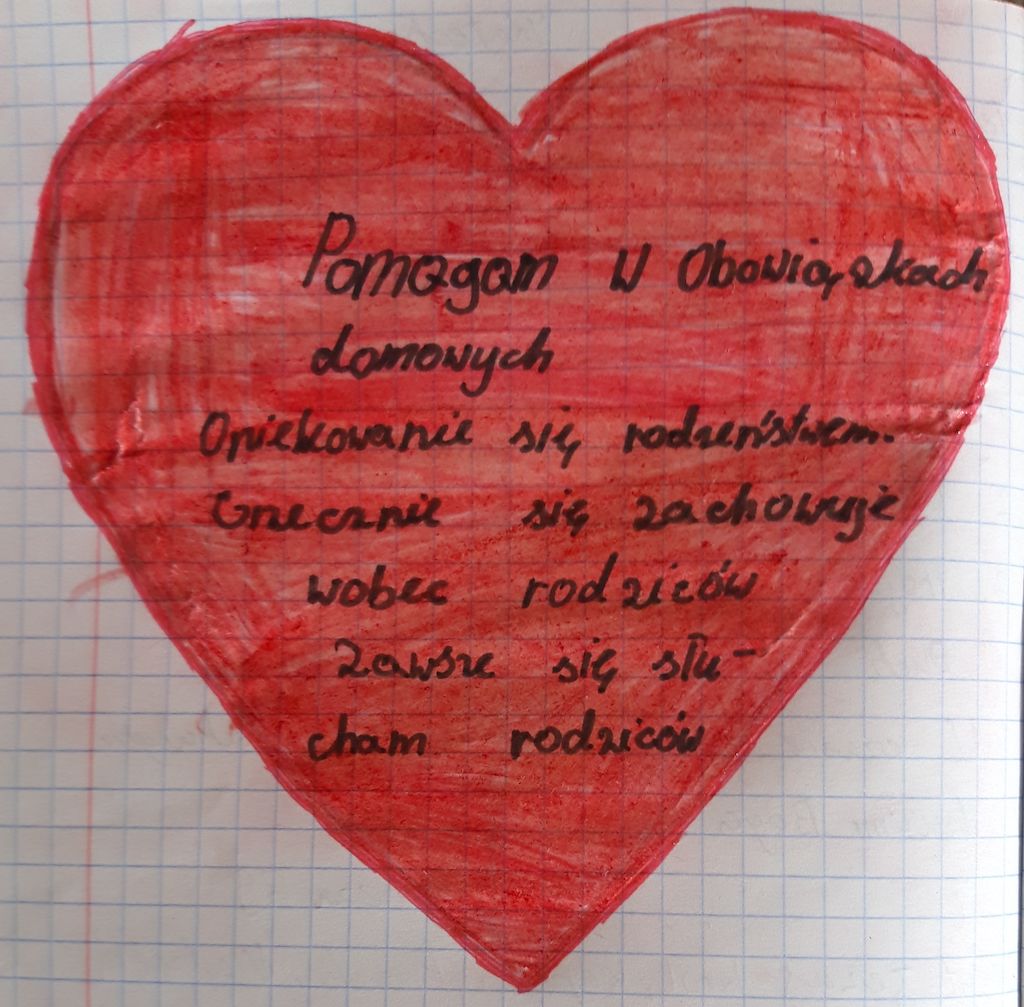 Pomagam W Obowiązkach
domowych
Opiekowanie się rodzeństwem.
Grzecznie się zachowuje
wobec rodziców
Zawsze się słu-
cham rodziców